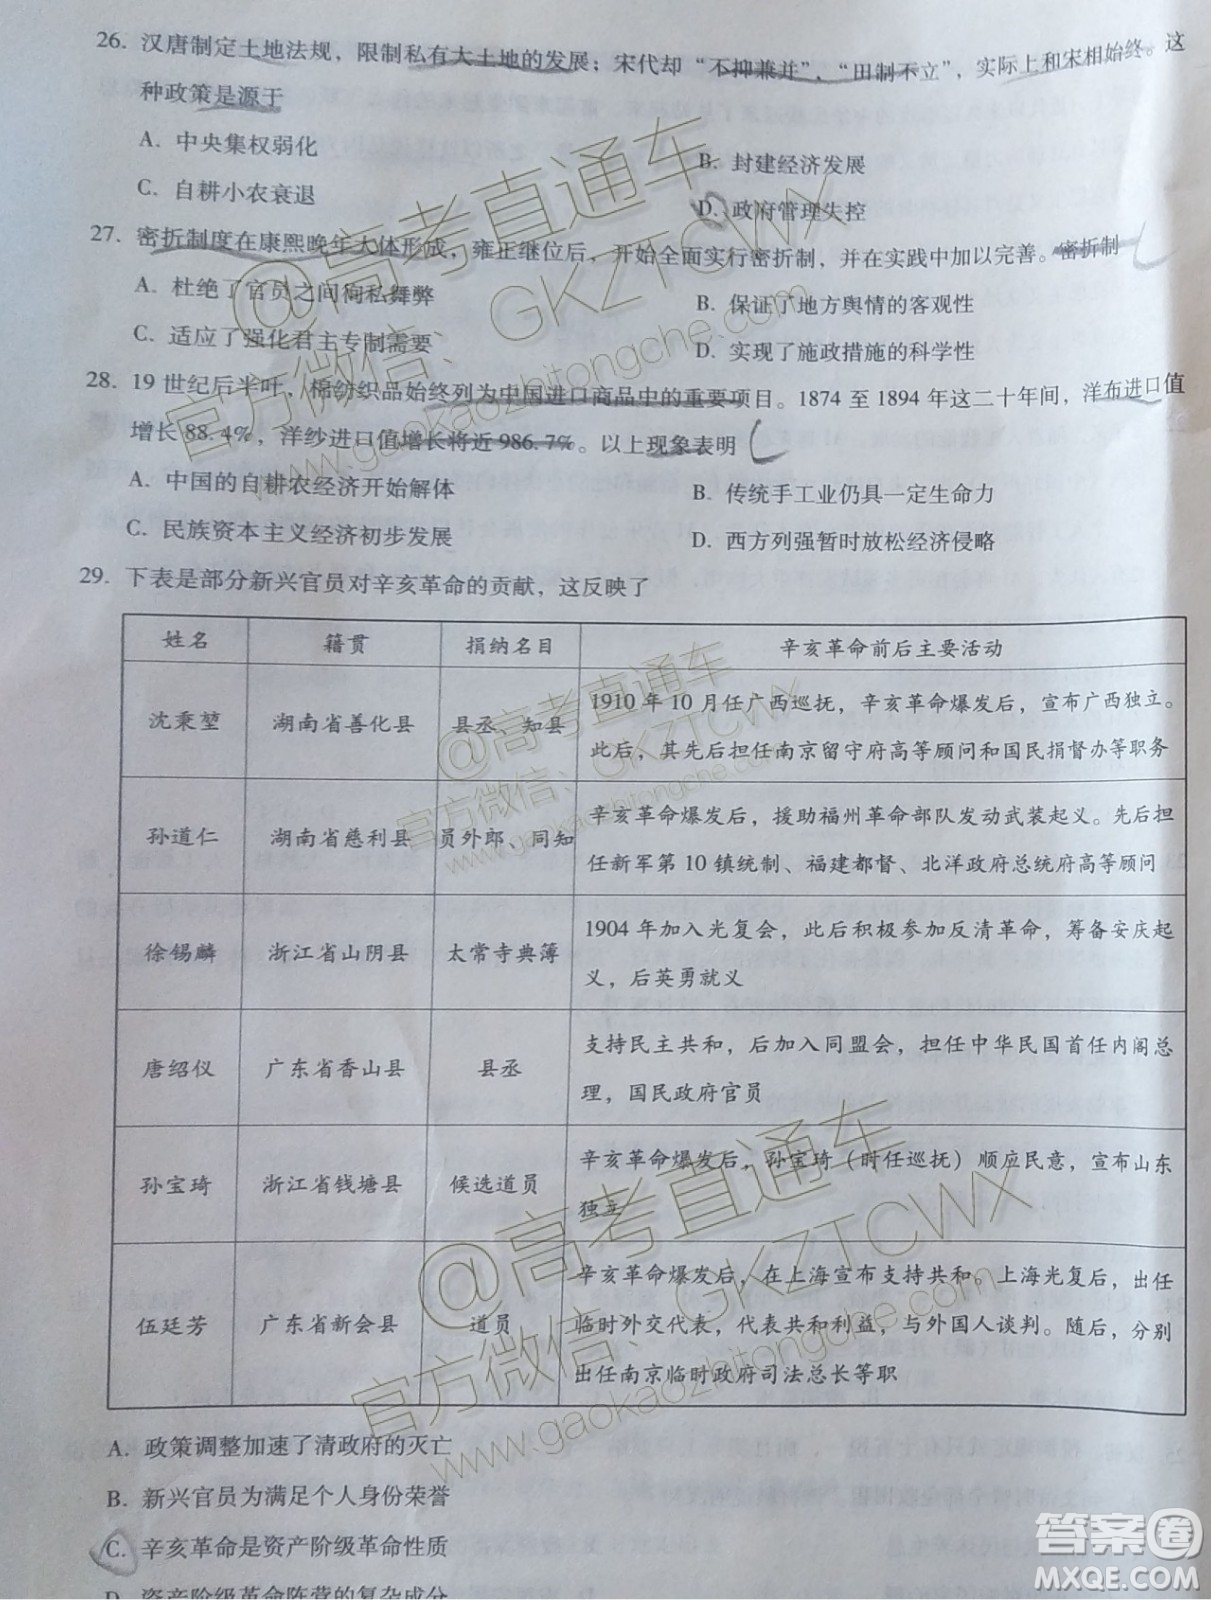 26. 汉唐制定土地法规，限制私有大土地的发展；宋代却“不抑兼并”、“田制不立”，实际上和宋相始终。这
种政策是源于
A. 中央集权弱化
B. 封建经济发展
C. 自耕小农衰退
D. 政府管理失控
27. 密折制度在康熙晚年大体形成，雍正继位后，开始全面实行密折制，并在实践中加以完善。密折制
A. 杜绝了官员之间徇私舞弊
B. 保证了地方舆情的客观性
C. 适应了强化君主专制需要
D. 实现了施政措施的科学性
28. 19 世纪后半叶，棉纺织品始终列为中国进口商品中的重要项目。1874 至 1894 年这二十年间，洋布进口值
增长 88.4%，洋纱进口值增长将近 986.7%。以上现象表明
A. 中国的自耕农经济开始解体
B. 传统手工业仍具一定生命力
C. 民族资本主义经济初步发展
D. 西方列强暂时放松经济侵略
29. 下表是部分新兴官员对辛亥革命的贡献，这反映了
姓名 籍贯 捐纳名目 辛亥革命前后主要活动
沈秉堃 湖南省善化县 县丞、知县 1910 年 10 月任广西巡抚，辛亥革命爆发后，宣布广西独立。
此后，其先后担任南京留守府高等顾问和国民捐督办等职务
孙道仁 湖南省慈利县 员外郎、同知 辛亥革命爆发后，援助福州革命部队发动武装起义。先后担
任新军第 10 镇统制、福建都督、北洋政府总统府高等顾问
徐锡麟 浙江省山阴县 太常寺典簿 1904 年加入光复会，此后积极参加反清革命，筹备安庆起
义，后英勇就义
唐绍仪 广东省香山县 县丞 支持民主共和，后加入同盟会，担任中华民国首任内阁总
理，国民政府官员
孙宝琦 浙江省钱塘县 候选道员 辛亥革命爆发后，孙宝琦（时任巡抚）顺应民意，宣布山东
独立
伍廷芳 广东省新会县 道员 辛亥革命爆发后，在上海宣布支持共和。上海光复后，出任
临时外交代表，代表共和利益，与外国人谈判。随后，分别
出任南京临时政府司法总长等职
A. 政策调整加速了清政府的灭亡
B. 新兴官员为满足个人身份荣誉
C. 辛亥革命是资产阶级革命性质
D. 资产阶级革命阵营的复杂成分
@高考直通车
官方微信、GKZTCWX
www.gaokaozhitongche.com
@高考直通车
官方微信、GKZTCWX
www.gaokaozhitongche.com
@高考直通车
官方微信、GKZTCWX
www.gaokaozhitongche.com
答案卷
MXQE.COM